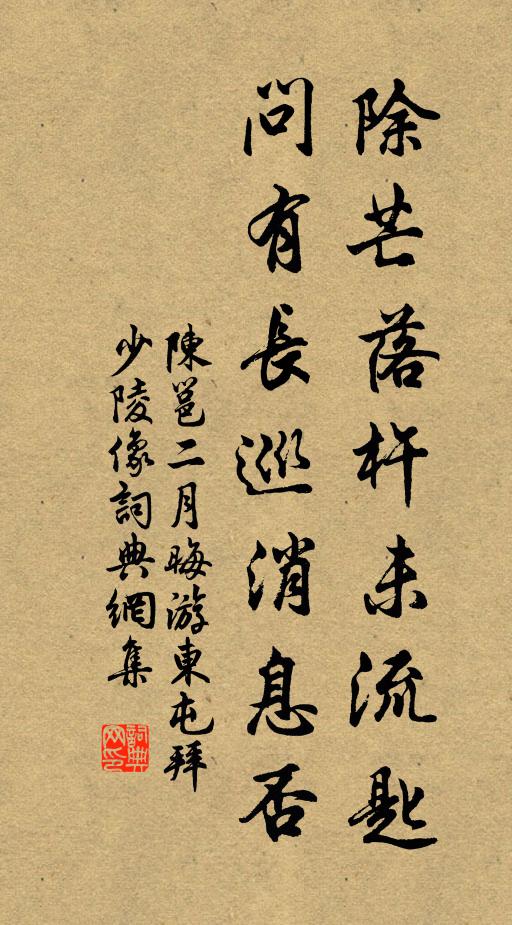 除芒落杵未流匙
問有長巡消息否
陳邕二月晦游東屯拜
少陵像詞典網集
詞典
网印